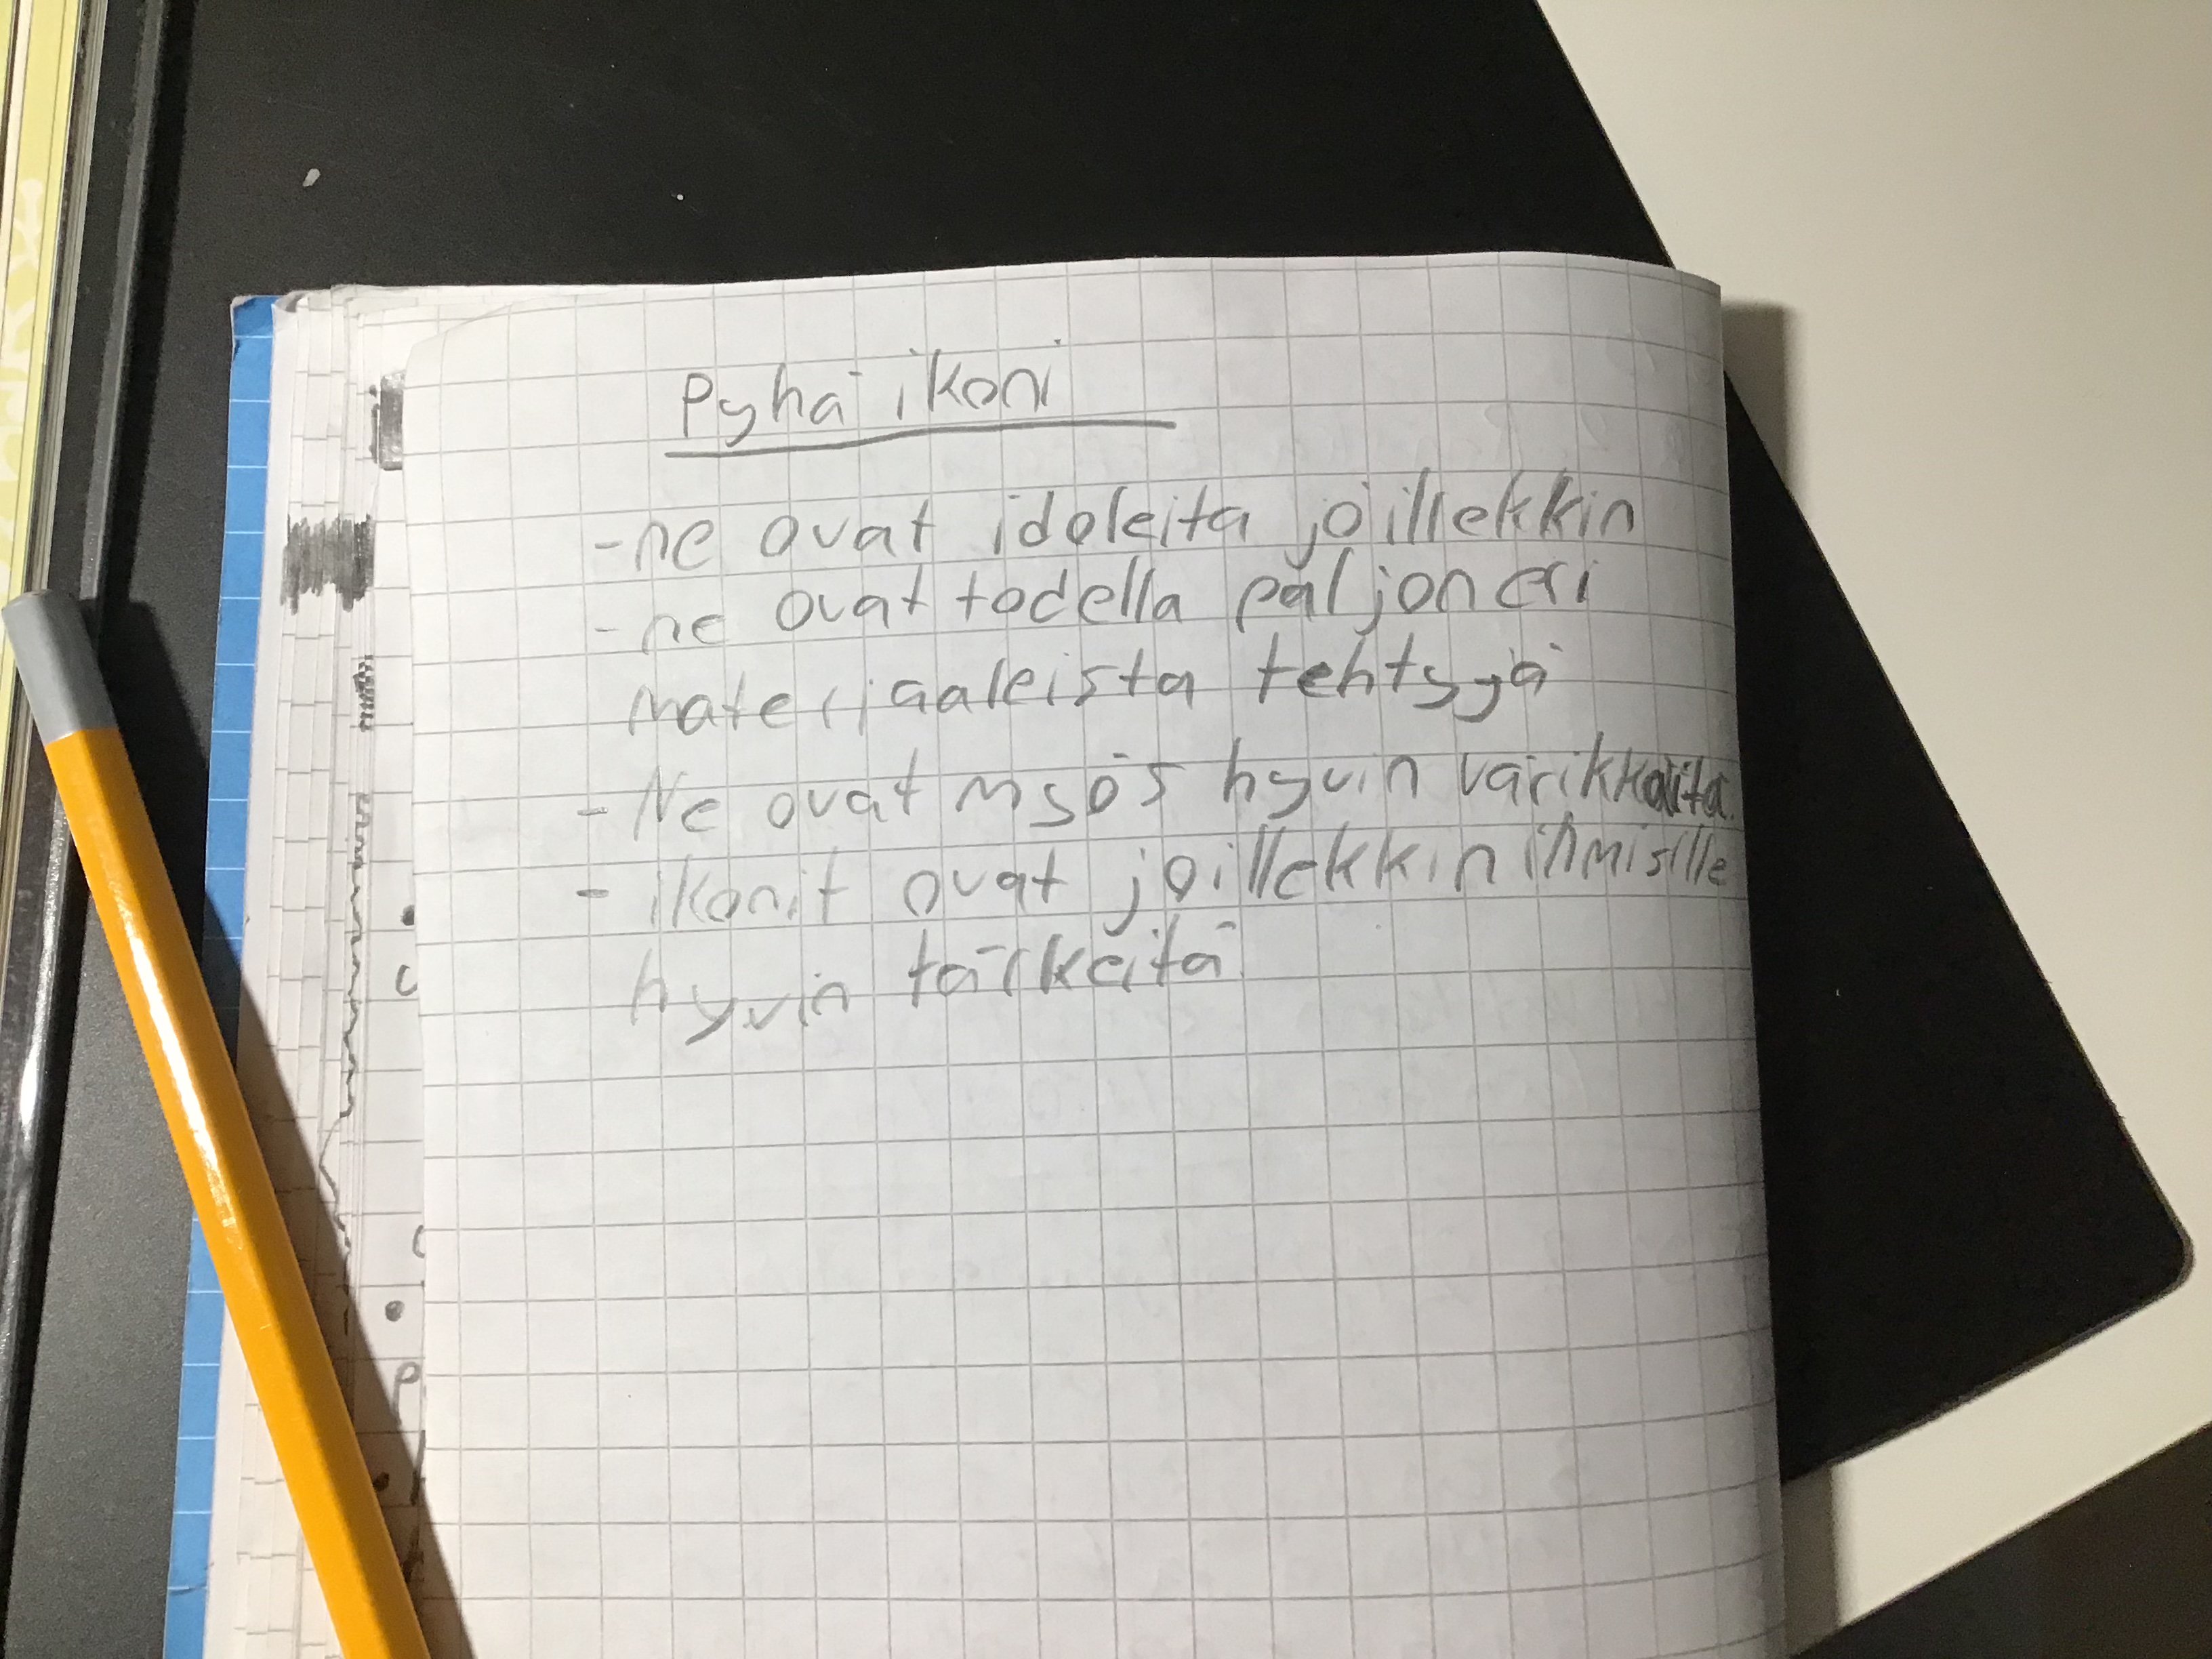 Pyhä ikoni
- ne ovat idoleita joillekkin
- ne ovat todella paljon eri
materjaaleista tehtyjä
- Ne ovat myös hyvin värikkäitä.
- ikonit ovat joillekkin ihmisille
hyvin tärkeitä